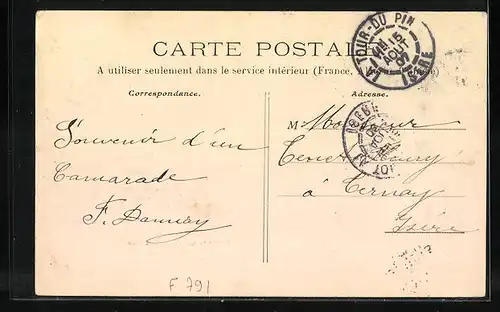 LA TOUR-DU PIN
15
AOUT
07
ISÈRE
CARTE POSTALE
A utiliser seulement dans le service intérieur (France,
Correspondance.
Adresse.
M Monsieur
Souvenir d'un
Camarade
à Ternay
Isère
F 791